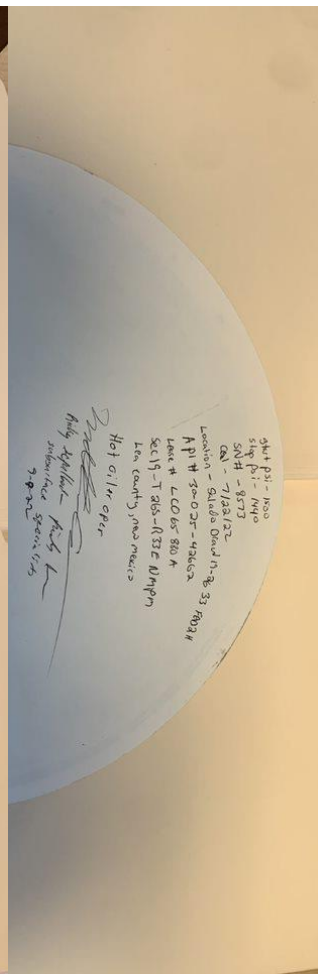 start psi - 1500
stop psi - 1440
SN# - 8573
Cal - 7/22/22
Location - Salado Draw 19 26 33 Fed 2H
Api # 30-025-42662
Lease # LC065880A
Sec 19-T26S-R33E NMPM
Lea county, new mexico
Hot oiler oper
subsurface specialists
9-8-22